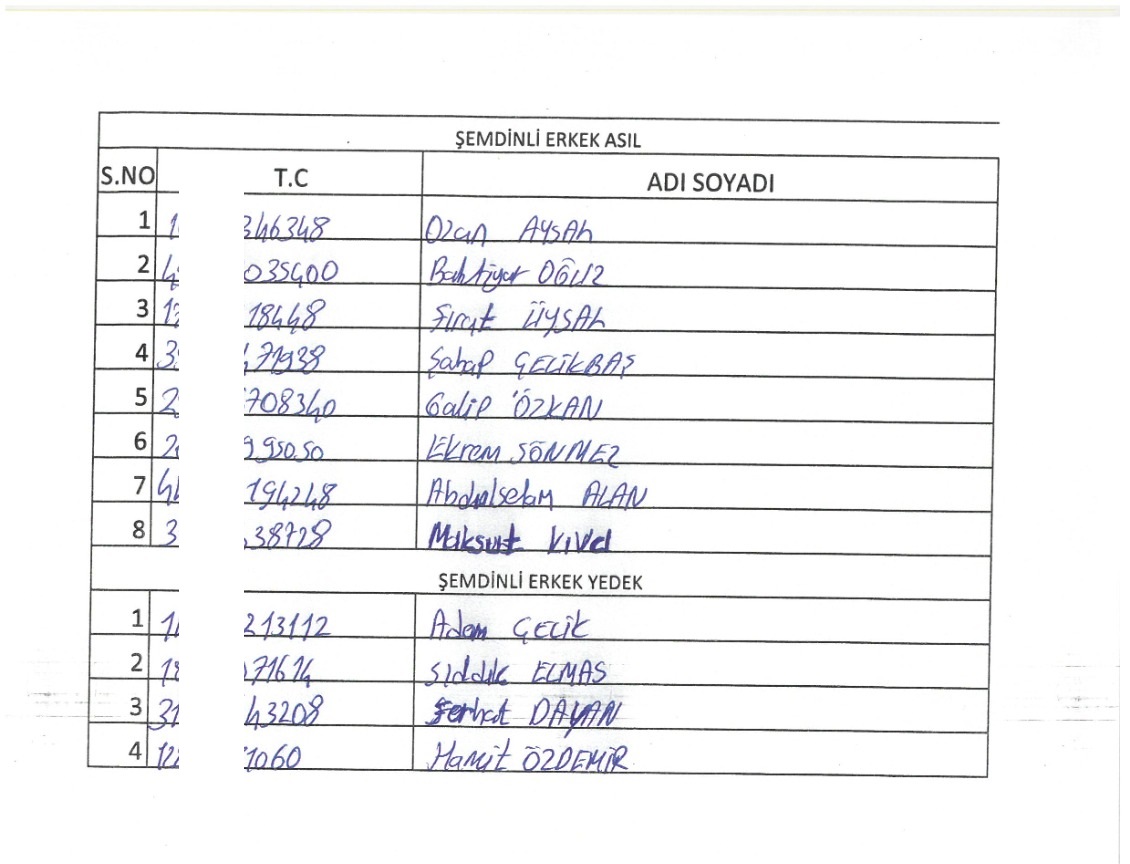 ŞEMDİNLİ ERKEK ASIL
S.NO T.C ADI SOYADI
1 346348 Ozan AYSAL
2 035400 Bahtiyar OĞUZ
3 18448 Fırat ÜYSAL
4 71938 Şahap ÇELİKBAŞ
5 708340 Galip ÖZKAN
6 995050 Ekrem SÖNMEZ
7 194248 Abdulselam ALAN
8 3 38728 Maksut
ŞEMDİNLİ ERKEK YEDEK
1 213112 Adem ÇELİK
2 18 71614 Sıddık ELMAS
3 31 43208 Ferhat DAYAN
4 12 1060 Hamit ÖZDEMİR